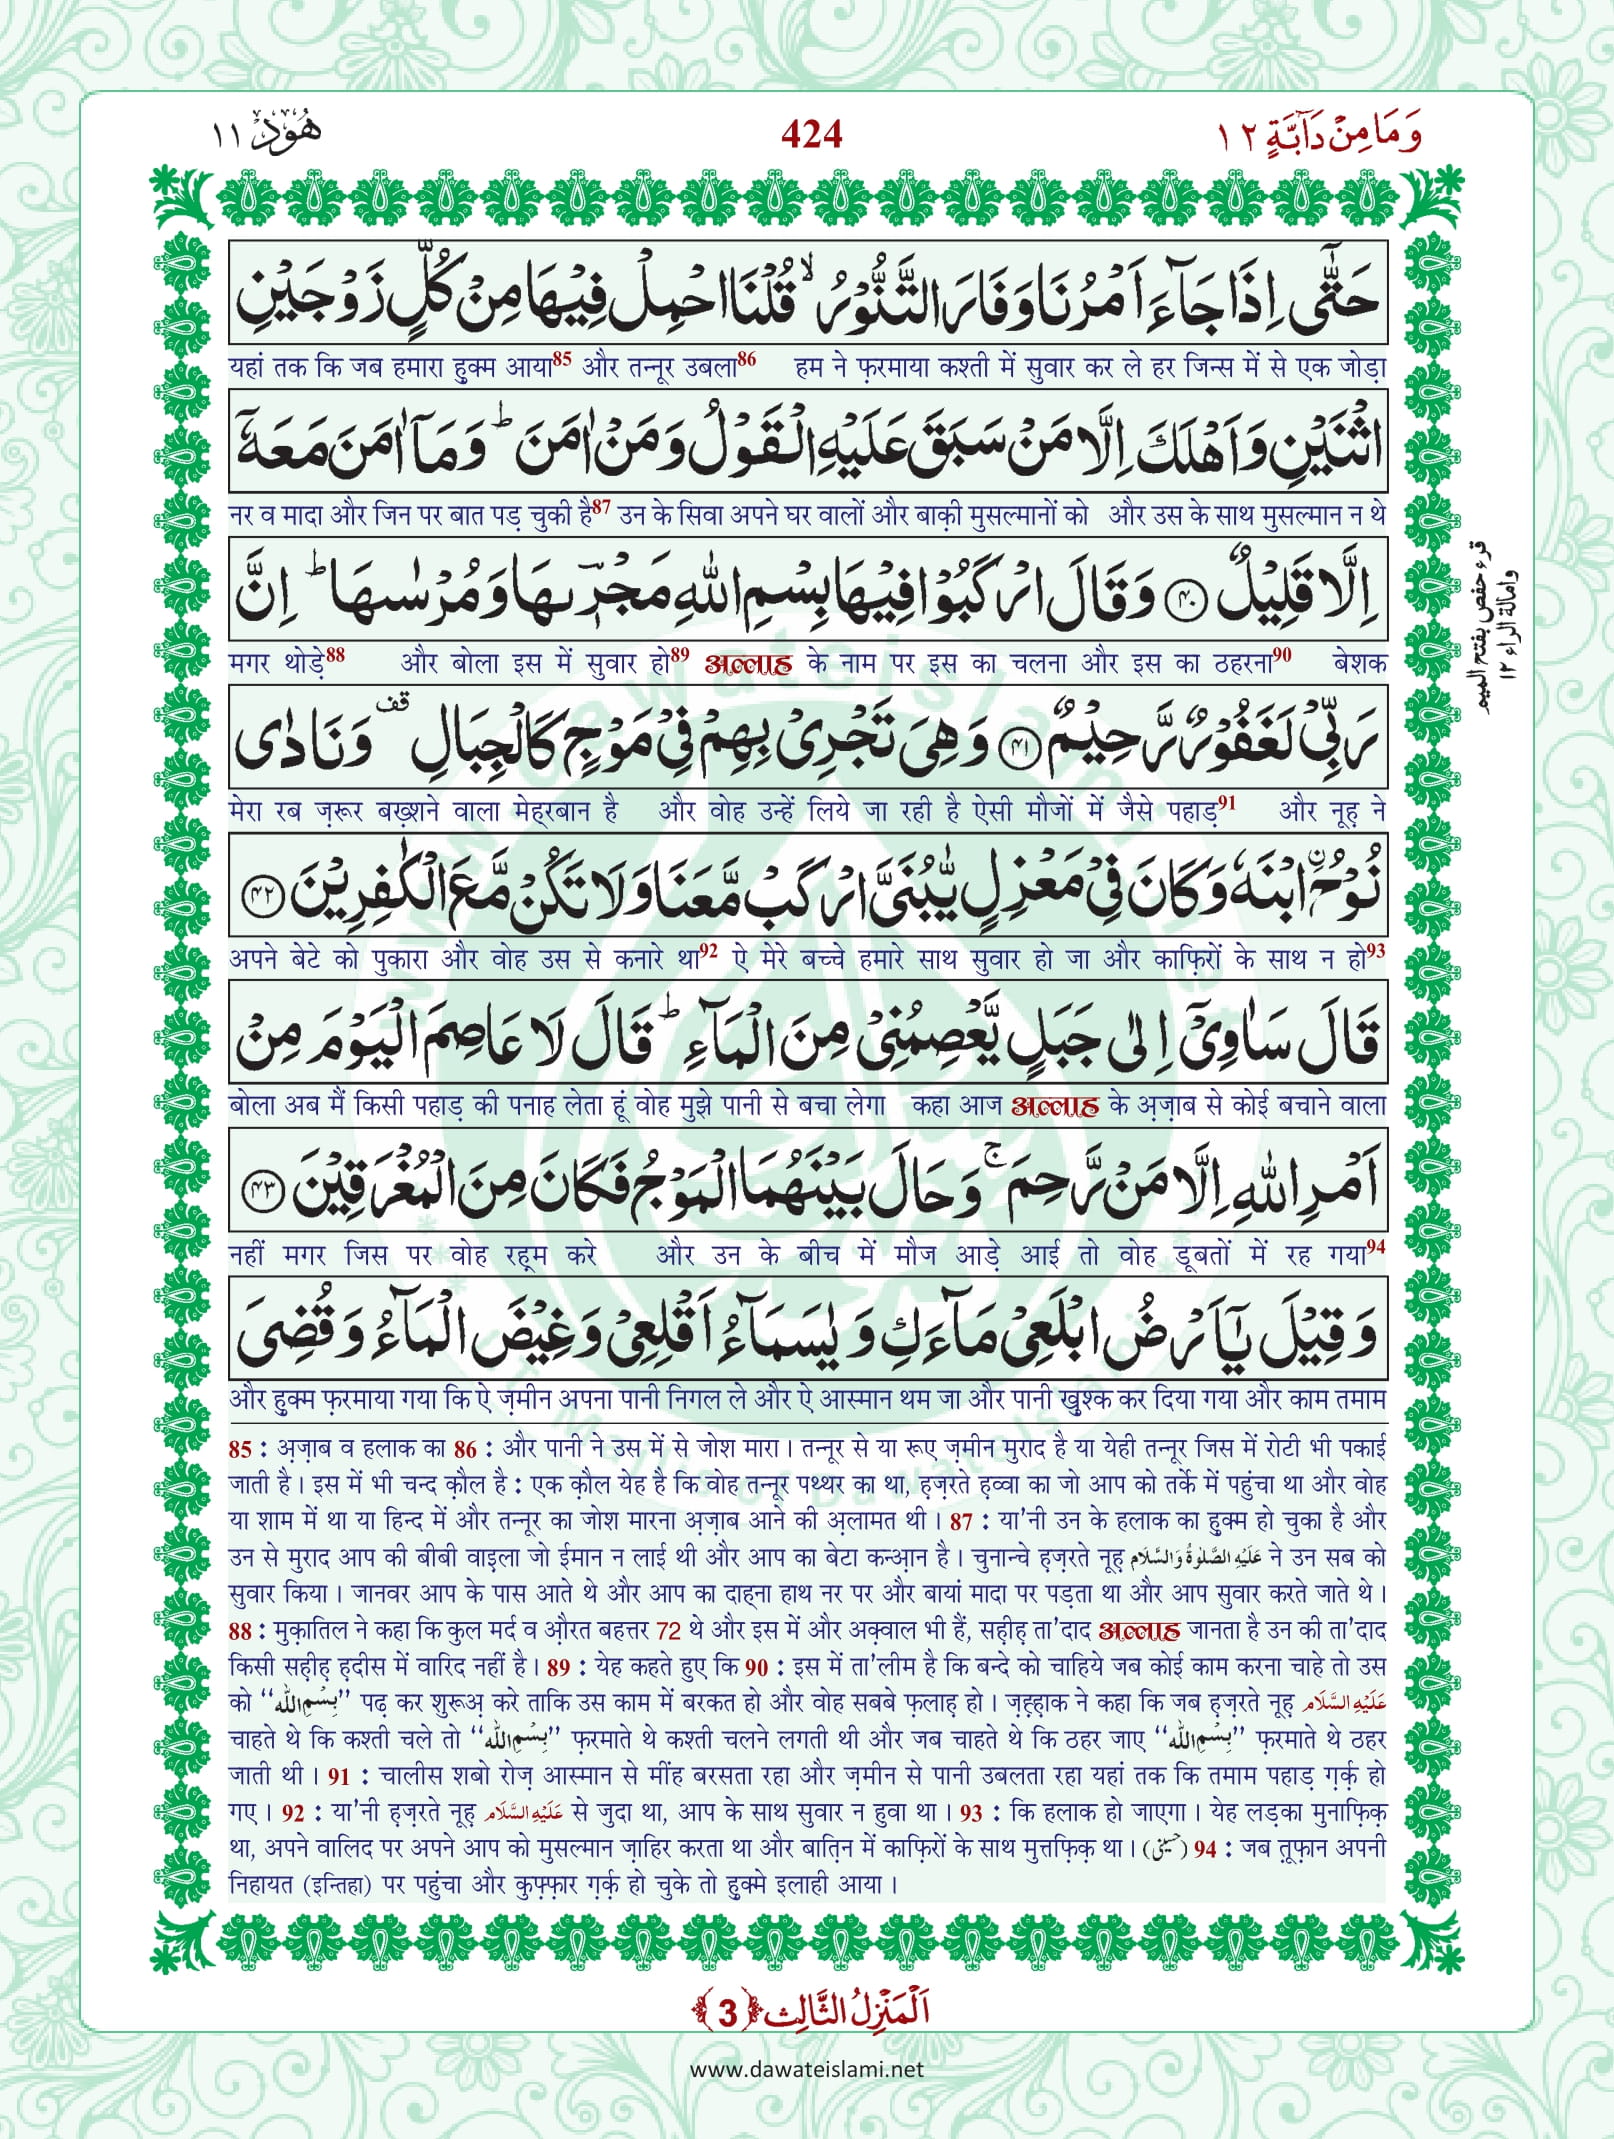 وَمَا مِنْ دَآبَّةٍ ١٢
424
هُوْد ١١
حَتّٰۤى اِذَا جَآءَ اَمْرُنَا وَفَارَ التَّنُّوْرُ ۙ قُلْنَا احْمِلْ فِیْهَا مِنْ كُلٍّ زَوْجَیْنِ
यहां तक कि जब हमारा हुक्म आया85 और तन्नूर उबला86 हम ने फ़रमाया कश्ती में सुवार कर ले हर जिन्स में से एक जोड़ा
اثْنَیْنِ وَاَهْلَكَ اِلَّا مَنْ سَبَقَ عَلَیْهِ الْقَوْلُ وَمَنْ اٰمَنَ ؕ وَمَاۤ اٰمَنَ مَعَهٗۤ
नर व मादा और जिन पर बात पड़ चुकी है87 उन के सिवा अपने घर वालों और बाक़ी मुसल्मानों को और उस के साथ मुसल्मान न थे
اِلَّا قَلِیْلٌ ﴿۴۰﴾ وَقَالَ ارْكَبُوْا فِیْهَا بِسْمِ اللّٰهِ مَجْرٖىهَا وَمُرْسٰىهَا ؕ اِنَّ
मगर थोड़े88 और बोला इस में सुवार हो89 अल्लाह के नाम पर इस का चलना और इस का ठहरना90 बेशक
رَبِّیْ لَغَفُوْرٌ رَّحِیْمٌ ﴿۴۱﴾ وَهِیَ تَجْرِیْ بِهِمْ فِیْ مَوْجٍ كَالْجِبَالِ ۟ قف وَنَادٰى
मेरा रब ज़रूर बख़्शने वाला मेह्रबान है और वोह उन्हें लिये जा रही है ऐसी मौजों में जैसे पहाड़91 और नूह़ ने
نُوْحُ ۨ ابْنَهٗ وَكَانَ فِیْ مَعْزِلٍ یّٰبُنَیَّ ارْكَبْ مَّعَنَا وَلَا تَكُنْ مَّعَ الْكٰفِرِیْنَ ﴿۴۲﴾
अपने बेटे को पुकारा और वोह उस से कनारे था92 ऐ मेरे बच्चे हमारे साथ सुवार हो जा और काफ़िरों के साथ न हो93
قَالَ سَاٰوِیْۤ اِلٰى جَبَلٍ یَّعْصِمُنِیْ مِنَ الْمَآءِ ؕ قَالَ لَا عَاصِمَ الْیَوْمَ مِنْ
बोला अब मैं किसी पहाड़ की पनाह लेता हूं वोह मुझे पानी से बचा लेगा कहा आज अल्लाह के अ़ज़ाब से कोई बचाने वाला
اَمْرِ اللّٰهِ اِلَّا مَنْ رَّحِمَ ۚ وَحَالَ بَیْنَهُمَا الْمَوْجُ فَكَانَ مِنَ الْمُغْرَقِیْنَ ﴿۴۳﴾
नहीं मगर जिस पर वोह रह़्म करे और उन के बीच में मौज आड़े आई तो वोह डूबतों में रह गया94
وَقِیْلَ یٰۤاَرْضُ ابْلَعِیْ مَآءَكِ وَ یٰسَمَآءُ اَقْلِعِیْ وَغِیْضَ الْمَآءُ وَقُضِیَ
और हुक्म फ़रमाया गया कि ऐ ज़मीन अपना पानी निगल ले और ऐ आस्मान थम जा और पानी खुश्क कर दिया गया और काम तमाम
قرء حفص بفتح المیم
وامالة الراء ١٢
85 : अ़ज़ाब व हलाक का 86 : और पानी ने उस में से जोश मारा । तन्नूर से या रूए ज़मीन मुराद है या येही तन्नूर जिस में रोटी भी पकाई
जाती है । इस में भी चन्द क़ौल है : एक क़ौल येह है कि वोह तन्नूर पथ्थर का था, ह़ज़रते ह़व्वा का जो आप को तर्के में पहुंचा था और वोह
या शाम में था या हिन्द में और तन्नूर का जोश मारना अ़ज़ाब आने की अ़लामत थी । 87 : या'नी उन के हलाक का हुक्म हो चुका है और
उन से मुराद आप की बीबी वाइला जो ईमान न लाई थी और आप का बेटा कन्आ़न है । चुनान्चे ह़ज़रते नूह़ عَلَیْهِ الصَّلٰوةُ وَالسَّلَام ने उन सब को
सुवार किया । जानवर आप के पास आते थे और आप का दाहना हाथ नर पर और बायां मादा पर पड़ता था और आप सुवार करते जाते थे ।
88 : मुक़ातिल ने कहा कि कुल मर्द व औ़रत बहत्तर 72 थे और इस में और अक़्वाल भी हैं, सह़ीह़ ता'दाद अल्लाह जानता है उन की ता'दाद
किसी सह़ीह़ ह़दीस में वारिद नहीं है । 89 : येह कहते हुए कि 90 : इस में ता'लीम है कि बन्दे को चाहिये जब कोई काम करना चाहे तो उस
को ‘‘بِسْمِ اللّٰه’’ पढ़ कर शुरूअ़ करे ताकि उस काम में बरकत हो और वोह सबबे फ़लाह़ हो । ज़ह़्ह़ाक ने कहा कि जब ह़ज़रते नूह़ عَلَیْهِ السَّلَام
चाहते थे कि कश्ती चले तो ‘‘بِسْمِ اللّٰه’’ फ़रमाते थे कश्ती चलने लगती थी और जब चाहते थे कि ठहर जाए ‘‘بِسْمِ اللّٰه’’ फ़रमाते थे ठहर
जाती थी । 91 : चालीस शबो रोज़ आस्मान से मींह बरसता रहा और ज़मीन से पानी उबलता रहा यहां तक कि तमाम पहाड़ ग़र्क़ हो
गए । 92 : या'नी ह़ज़रते नूह़ عَلَیْهِ السَّلَام से जुदा था, आप के साथ सुवार न हुवा था । 93 : कि हलाक हो जाएगा । येह लड़का मुनाफ़िक़
था, अपने वालिद पर अपने आप को मुसल्मान ज़ाहिर करता था और बात़िन में काफ़िरों के साथ मुत्तफ़िक़ था । (حسینی) 94 : जब त़ूफ़ान अपनी
निहायत (इन्तिहा) पर पहुंचा और कुफ़्फ़ार ग़र्क़ हो चुके तो हुक्मे इलाही आया ।
اَلْمَنْزِلُ الثَّالِث ﴿3﴾
www.dawateislami.net